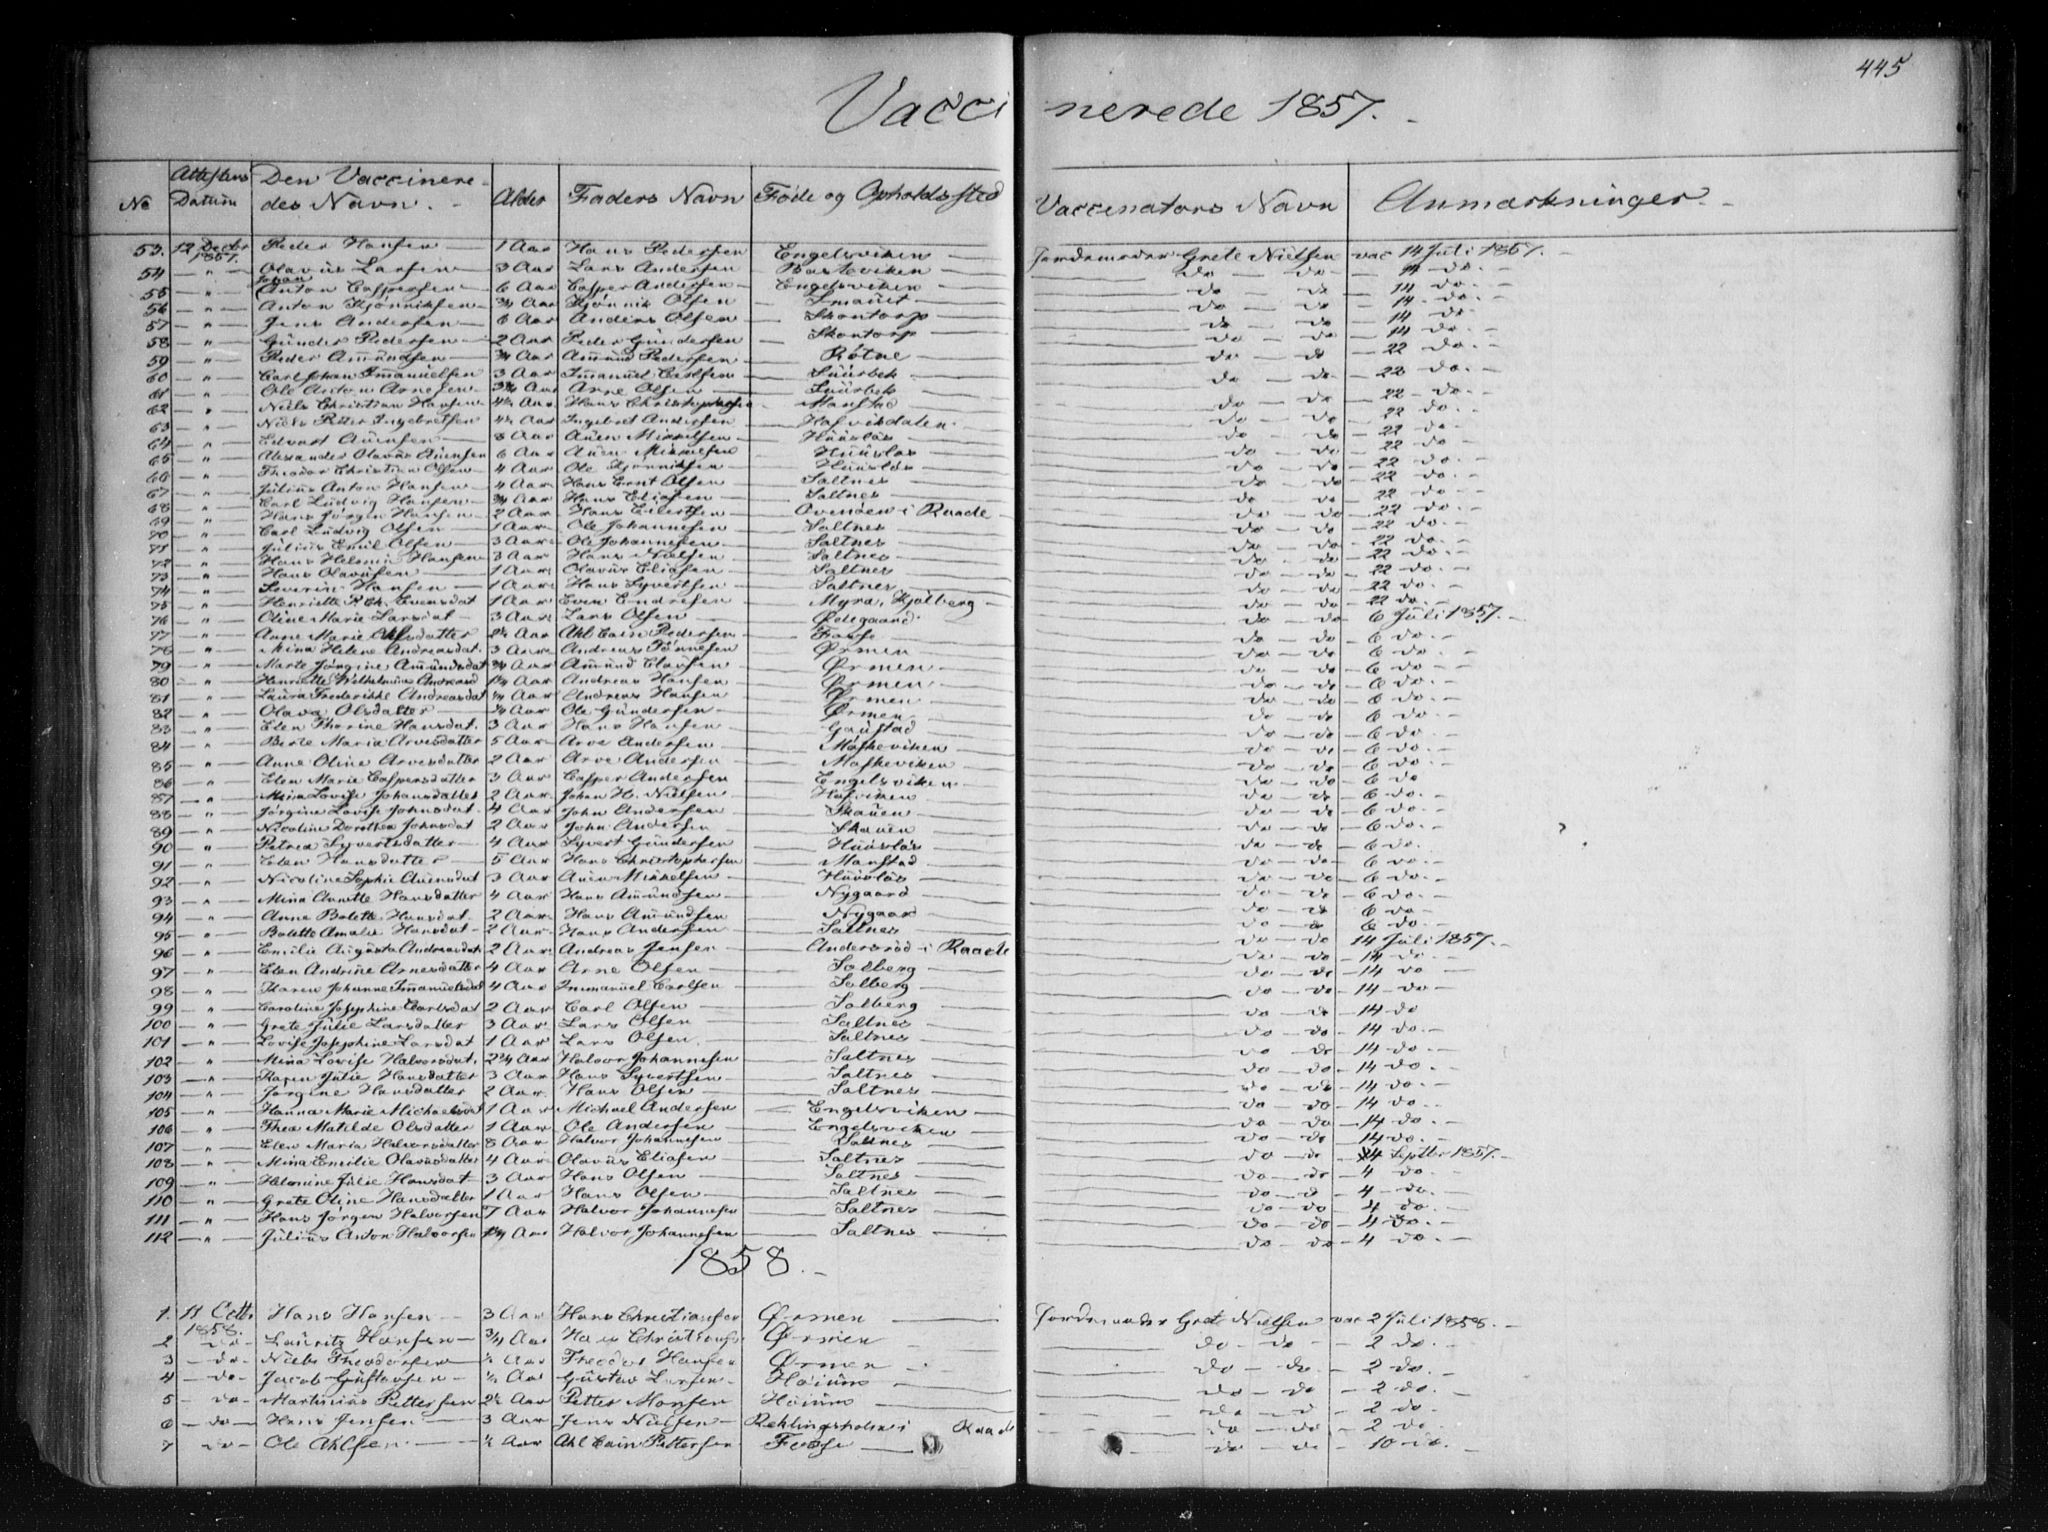 445
Vaccinerede 1857.
No Attestens Datum Den Vaccineredes Navn. Alder Faders Navn Føde og Opholdssted Vaccinators Navn Anmærkninger.
53. 12 Decbr 1857. Peder Hansen 1 Aar Hans Pedersen Engelsviken Jordemoder Grete Nielsen vac 14 Juli 1857.
54 " Olavus Larsen 3 Aar Lars Andersen do do 14 do.
55 " Johan Anton Caspersen 6 Aar Casper Andersen Engelsviken do do 14 do.
56 " Anton Kjønniksen 3/4 Aar Kjønnik Olsen Smauet do do 14 do.
57 " Jens Andersen 6 Aar Anders Olsen Skontorp do do 14 do
58 " Günder Pedersen 2 Aar Peder Gündersen Skontorp do do 14 do.
59 " Peder Amündsen 3/4 Aar Amünd Pedersen Røtne do do 22 do.
60 " Carl Johan Imanüelsen 3 Aar Imanuel Carlsen Süürbek do do 22 do.
61 " Ole Anton Arnesen 3/4 Aar Arne Olsen Süürbek do do 22 do.
62 " Niels Christian Hansen 4½ Aar Hans Christophersen Manstad do do 22 do.
63 " Niels Petter Ingebretsen 4½ Aar Ingebret Andersen Hafvikdalen do do 22 do
64 " Edvart Auensen 8 Aar Auen Mikkelsen Hüüsløs do do 22 do
65 " Alexander Olavus Auensen 6 Aar Auen Mikkelsen Hüüsløs do do 22 do.
66 " Theodor Christian Olsen 4 Aar Ole Kjønniksen Hüüsløs do do 22 do.
67 " Julius Anton Hansen 4 Aar Hans Ernt Olsen Saltnes do do 22 do.
68 " Carl Ludvig Hansen 3/4 Aar Hans Eliasen Saltnes do do 22 do.
69 " Hans Jørgen Hansen 2 Aar Hans Eilertsen i Raade do do 22 do.
70 " Carl Ludvig Olsen 1 Aar Ole Johannesen Saltnes do do 22 do.
71 " Julius Emil Olsen 3 Aar Ole Johannesen Saltnes do do 22 do.
72 " Hans Helmin Hansen 3 Aar Hans Nielsen Saltnes do do 22 do.
73 " Hans Olavusen 1 Aar Olavus Eliasen Saltnes do do 22 do.
74 " Severin Hansen 1 Aar Hans Syvertsen Saltnes do do 22 do.
75 " Henriette R. Ch. Evensdat 1 Aar Even Endresen Myra, Kjølberg do do 22 do.
76 " Oline Marie Larsdat 3 Aar Lars Olsen Ødegaard do do 6 Juli 1857.
77 " Anne Marie Ahlsdatter 2½ Aar Ahl Cain Pedersen Fosse do do 6 do.
78 " Mina Helene Andreasdat. 3 Aar Andreas Tønnesen Ørmen do do 6 do.
79 " Marte Jørgine Amündsdat 3/4 Aar Amünd Olavsen Ørmen do do 6 do.
80 " Henriette Wilhelmine Andreasd 1¼ Aar Andreas Hansen Ørmen do do 6 do.
81 " Laura Frederikke Andreasdat ¼ Aar Andreas Hansen Ørmen do do 6 do.
82 " Olava Olsdatter ¼ Aar Ole Gündersen Ørmen do do 6 do.
83 " Elen Thorine Hansdat. 3 Aar Hans Hansen Gaustad do do 6 do.
84 " Berte Maria Arvesdatter 5 Aar Arve Andersen Møskeviken do do 6 do.
85 " Anne Oline Arvesdatter 2 Aar Arve Andersen Møskeviken do do 6 do.
86 " Elen Marie Caspersdatter 3 Aar Casper Andersen Engelsviken do do 6 do
87 " Mina Lovise Johansdatter 2 Aar Johan H. Nielsen Hafviken do do 6 do.
88 " Jørgine Lovise Johnsdat. 4 Aar John Andersen Skauen do do 6 do.
89 " Nicoline Dorothea Johnsdat 2 Aar John Andersen Skauen do do 6 do.
90 " Petrea Syvertsdatter 4 Aar Syvert Gündersen Hüüsløs do do 6 do.
91 " Elen Hansdatter 5 Aar Hans Christophersen Manstad do do 6 do.
92 " Nicoline Sophie Auensdat 3 Aar Auen Mikkelsen Hüüsløs do do 6 do.
93 " Mina Annette Hansdatter 4 Aar Hans Amündsen Nygaard do do 6 do.
94 " Anne Bolette Hansdat. 2 Aar Hans Amündsen Nygaar do do 6 do
95 " Bolette Amalie Hansdat. 2 Aar Hans Andersen Saltnes do do 6 do.
96 " Emilie Augusta Andreasdat. 2 Aar Andreas Jensen Andersrød i Raade do do 14 Juli 1857.
97 " Elen Andrine Arnesdatter 4 Aar Arne Olsen Solberg do do 14 do.
98 " Karen Johanne Imanuelsdat 4 Aar Immanuel Carlsen Solberg do do 14 do
99 " Caroline Josephine Carlsdat 2 Aar Carl Olsen Solberg do do 14 do.
100 " Grete Julie Larsdatter 3 Aar Lars Olsen Saltnes do do 14 do
101 " Lovise Josephine Larsdat 1 Aar Lars Olsen. Saltnes do do 14 do.
102 " Mina Lovise Halvorsdat. 2¼ Aar Halvor Johannesen Saltnes do do 14 do.
103 " Karen Julie Hansdatter 3 Aar Hans Syvertsen Saltnes do do 14 do.
104 " Jørgine Hansdatter 2 Aar. Hans Olsen Saltnes do do 14 do.
105 " Hanna Marie Michaelsdat 1 Aar Michael Andersen Engelsviken do do 14 do.
106 " Thea Matilde Olsdatter 1 Aar Ole Andersen Engelsviken do do 14 do.
107 " Elen Maria Halvorsdatter 8 Aar Halvor Johannesen Saltnes do do 14 do.
108 " Mina Emilie Olavusdatter 4 Aar Olavüs Eliasen Saltnes do do 4 Septbr 1857.
109 " Helmine Julie Hansdat 3 Aar Hans Olsen Saltnes do do 4 do.
110 " Grete Oline Hansdatter 1 Aar Hans Olsen Saltnes do do 4 do.
111 " Hans Jørgen Halvorsen 7 Aar Halvor Johannesen Saltnes do do 4 do.
112 " Julius Anton Halvorsen Aar Halvor Johannesen Saltnes do do 4 do.
1858.
1. 11 Octbr 1858. Hans Hansen 3 Aar Hans Christiansen Ørmen Jordemoder Grete Nielsen vac 2 Juli 1858.
2 do Lauritz Hansen 3/4 Aar Hans Christians. Ørmen do do 2 do.
3 do Niels Theodorsen ½ Aar Theodor Hansen Ørmen do do 2 do.
4 do Jacob Gustavsen ½ Aar Gustav Larsen Høium do do 2 do.
5 do Martinius Pettersen 2½ Aar Petter Monsen Høium do do 2 do.
6 do Hans Jensen 3 Aar Jens Nielsen Rehlingsholm i Raade do do 2 do
7 do Ole Ahlsen ½ Aar Ahl Cain Pettersen Fosse do do 10 do.